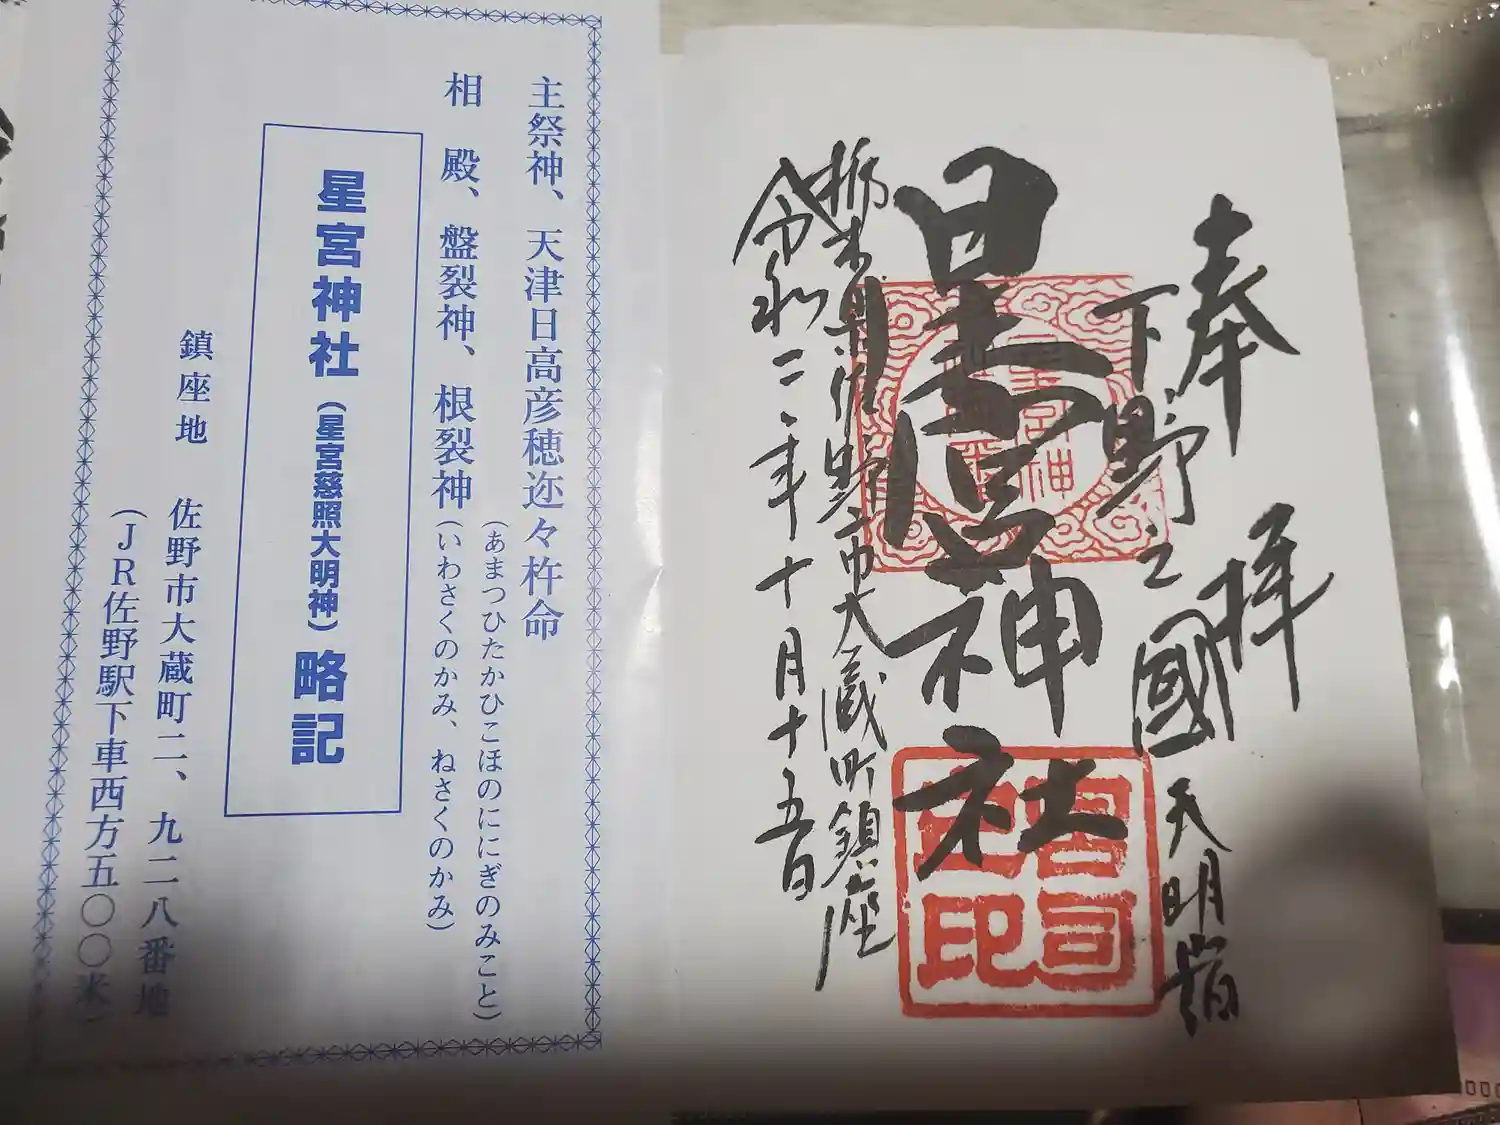 奉拝
下野之國 天明宿
星宮神社
宮司之印
栃木県佐野市大蔵町鎮座
令和二年十月十五日
主祭神、天津日高彦穂迩々杵命
(あまつひたかひこほのににぎのみこと)
相殿、盤裂神、根裂神
(いわさくのかみ、ねさくのかみ)
星宮神社(星宮慈照大明神)略記
鎮座地 佐野市大蔵町二、九二八番地
(JR佐野駅下車西方五〇〇米)